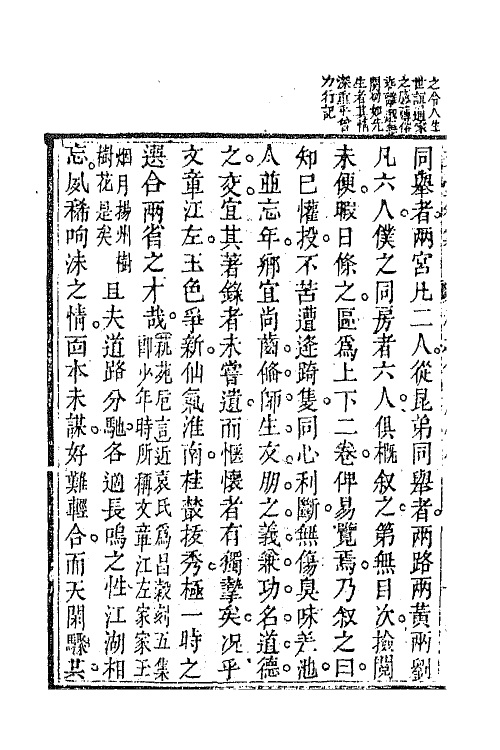 之令人生
世誼通家
之感
先
生者其情
深重乎曾
力行記
同舉者兩宮凡二人從昆弟同舉者兩路兩黃兩劉
凡六人僕之同房者六人俱概叙之第無目次撿閱
未便暇日條之區為上下二卷俾易覽焉乃叙之曰
知已懽投不苦遭逢踦隻同心利斷無傷臭味差池
人並忘年鄉宜尚齒脩師生友朋之義兼功名道德
之交宜其著錄者未嘗遺而愜懷者有獨摯矣况乎
文章江左玉色爭新仙氣淮南桂叢拔秀極一時之
選合兩省之才哉藝苑卮言近袁氏為昌穀刻五集
即少年時所稱文章江左家家玉
烟月揚州樹
樹花是矣且夫道路分馳各適長鳴之性江湖相
忘夙稀呴沫之情面本未謀好難輕合而天開驟其